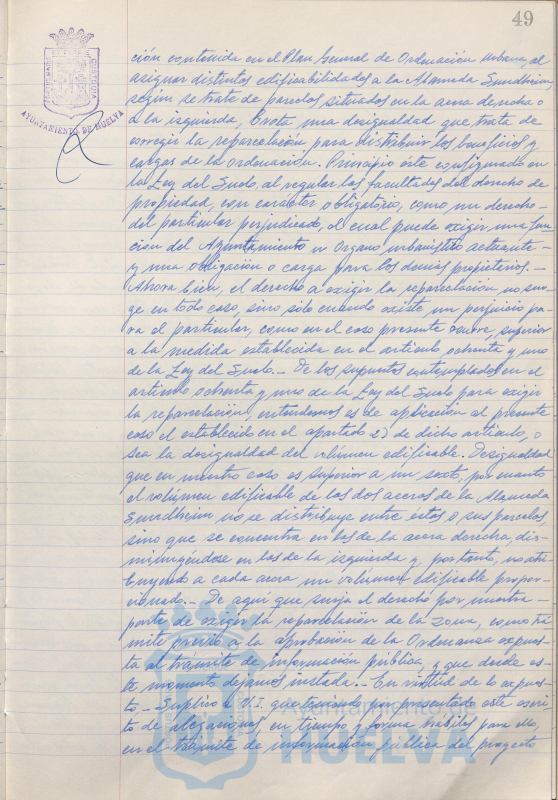 49
AYUNTAMIENTO DE HUELVA
ción contenida en el Plan General de Ordenación Urbana, al
asignar distintas edificabilidades a la Alameda Sundheim,
según se trate de parcelas situadas en la acera derecha o
a la izquierda, brota una desigualdad que trata de
corregir la reparcelación para distribuir los beneficios y
cargas de la ordenación. Principio éste configurado en
la Ley del Suelo, al regular las facultades del derecho de
propiedad, con carácter obligatorio, como un derecho
del particular perjudicado, el cual puede exigir una fun
ción del Ayuntamiento u Organo urbanístico actuante
y una obligación o carga para los demás propietarios.-
Ahora bien, el derecho a exigir la reparcelación no sur
ge en todo caso, sino sólo cuando existe un perjuicio pa-
ra el particular, como en el caso presente ocurre, superior
a la medida establecida en el artículo ochenta y uno
de la Ley del Suelo.- De los supuestos contemplados en el
artículo ochenta y uno de la Ley del Suelo para exigir
la reparcelación, entendemos es de aplicación al presente
caso el establecido en el apartado 2) de dicho artículo, o
sea la desigualdad del volúmen edificable. Desigualdad
que en nuestro caso es superior a un sexto, por cuanto
el volúmen edificable de las dos aceras de la Alameda
Sundheim no se distribuye entre éstas o sus parcelas,
sino que se concentra en las de la acera derecha, dis-
minuyéndose en las de la izquierda y, por tanto, no atri
buyendo a cada acera un volúmen edificable propor-
cionado.- De aquí que surja el derecho por nuestra
parte, de exigir la reparcelación de la zona, como trá
mite previo a la aprobación de la Ordenanza expues-
ta al trámite de información pública, y que desde es-
te momento dejamos instada.- En virtud de lo expues-
to.- Suplico a V.I. que teniendo por presentado este escri-
to de alegaciones, en tiempo y forma hábiles para ello,
en el trámite de información pública del proyecto
HUELVA